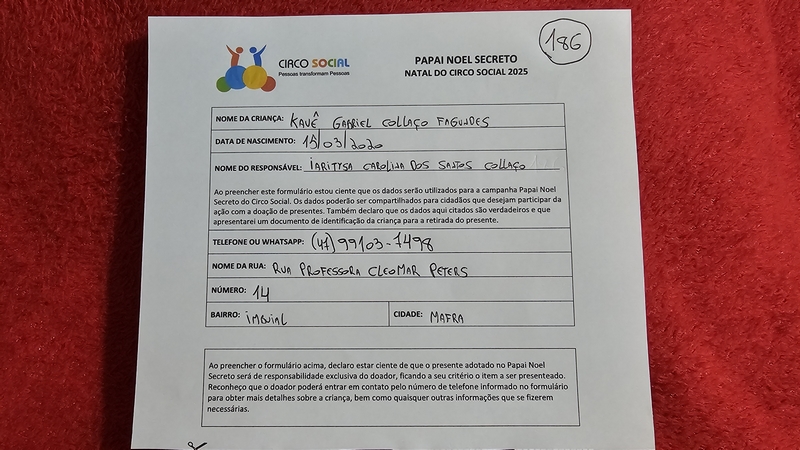 CIRCO SOCIAL
Pessoas transformam Pessoas
PAPAI NOEL SECRETO
NATAL DO CIRCO SOCIAL 2025
186
NOME DA CRIANÇA: KAUÊ GABRIEL COLLAÇO FAGUNDES
DATA DE NASCIMENTO: 15/03/2020
NOME DO RESPONSÁVEL: IARITYSA CAROLINA DOS SANTOS COLLAÇO
Ao preencher este formulário estou ciente que os dados serão utilizados para a campanha Papai Noel
Secreto do Circo Social. Os dados poderão ser compartilhados para cidadãos que desejam participar da
ação com a doação de presentes. Também declaro que os dados aqui citados são verdadeiros e que
apresentarei um documento de identificação da criança para a retirada do presente.
TELEFONE OU WHATSAPP: (47) 99103-7498
NOME DA RUA: RUA PROFESSORA CLEOMAR PETERS
NÚMERO: 14
BAIRRO: CIDADE: MAFRA
Ao preencher o formulário acima, declaro estar ciente de que o presente adotado no Papai Noel
Secreto será de responsabilidade exclusiva do doador, ficando a seu critério o item a ser presenteado.
Reconheço que o doador poderá entrar em contato pelo número de telefone informado no formulário
para obter mais detalhes sobre a criança, bem como quaisquer outras informações que se fizerem
necessárias.